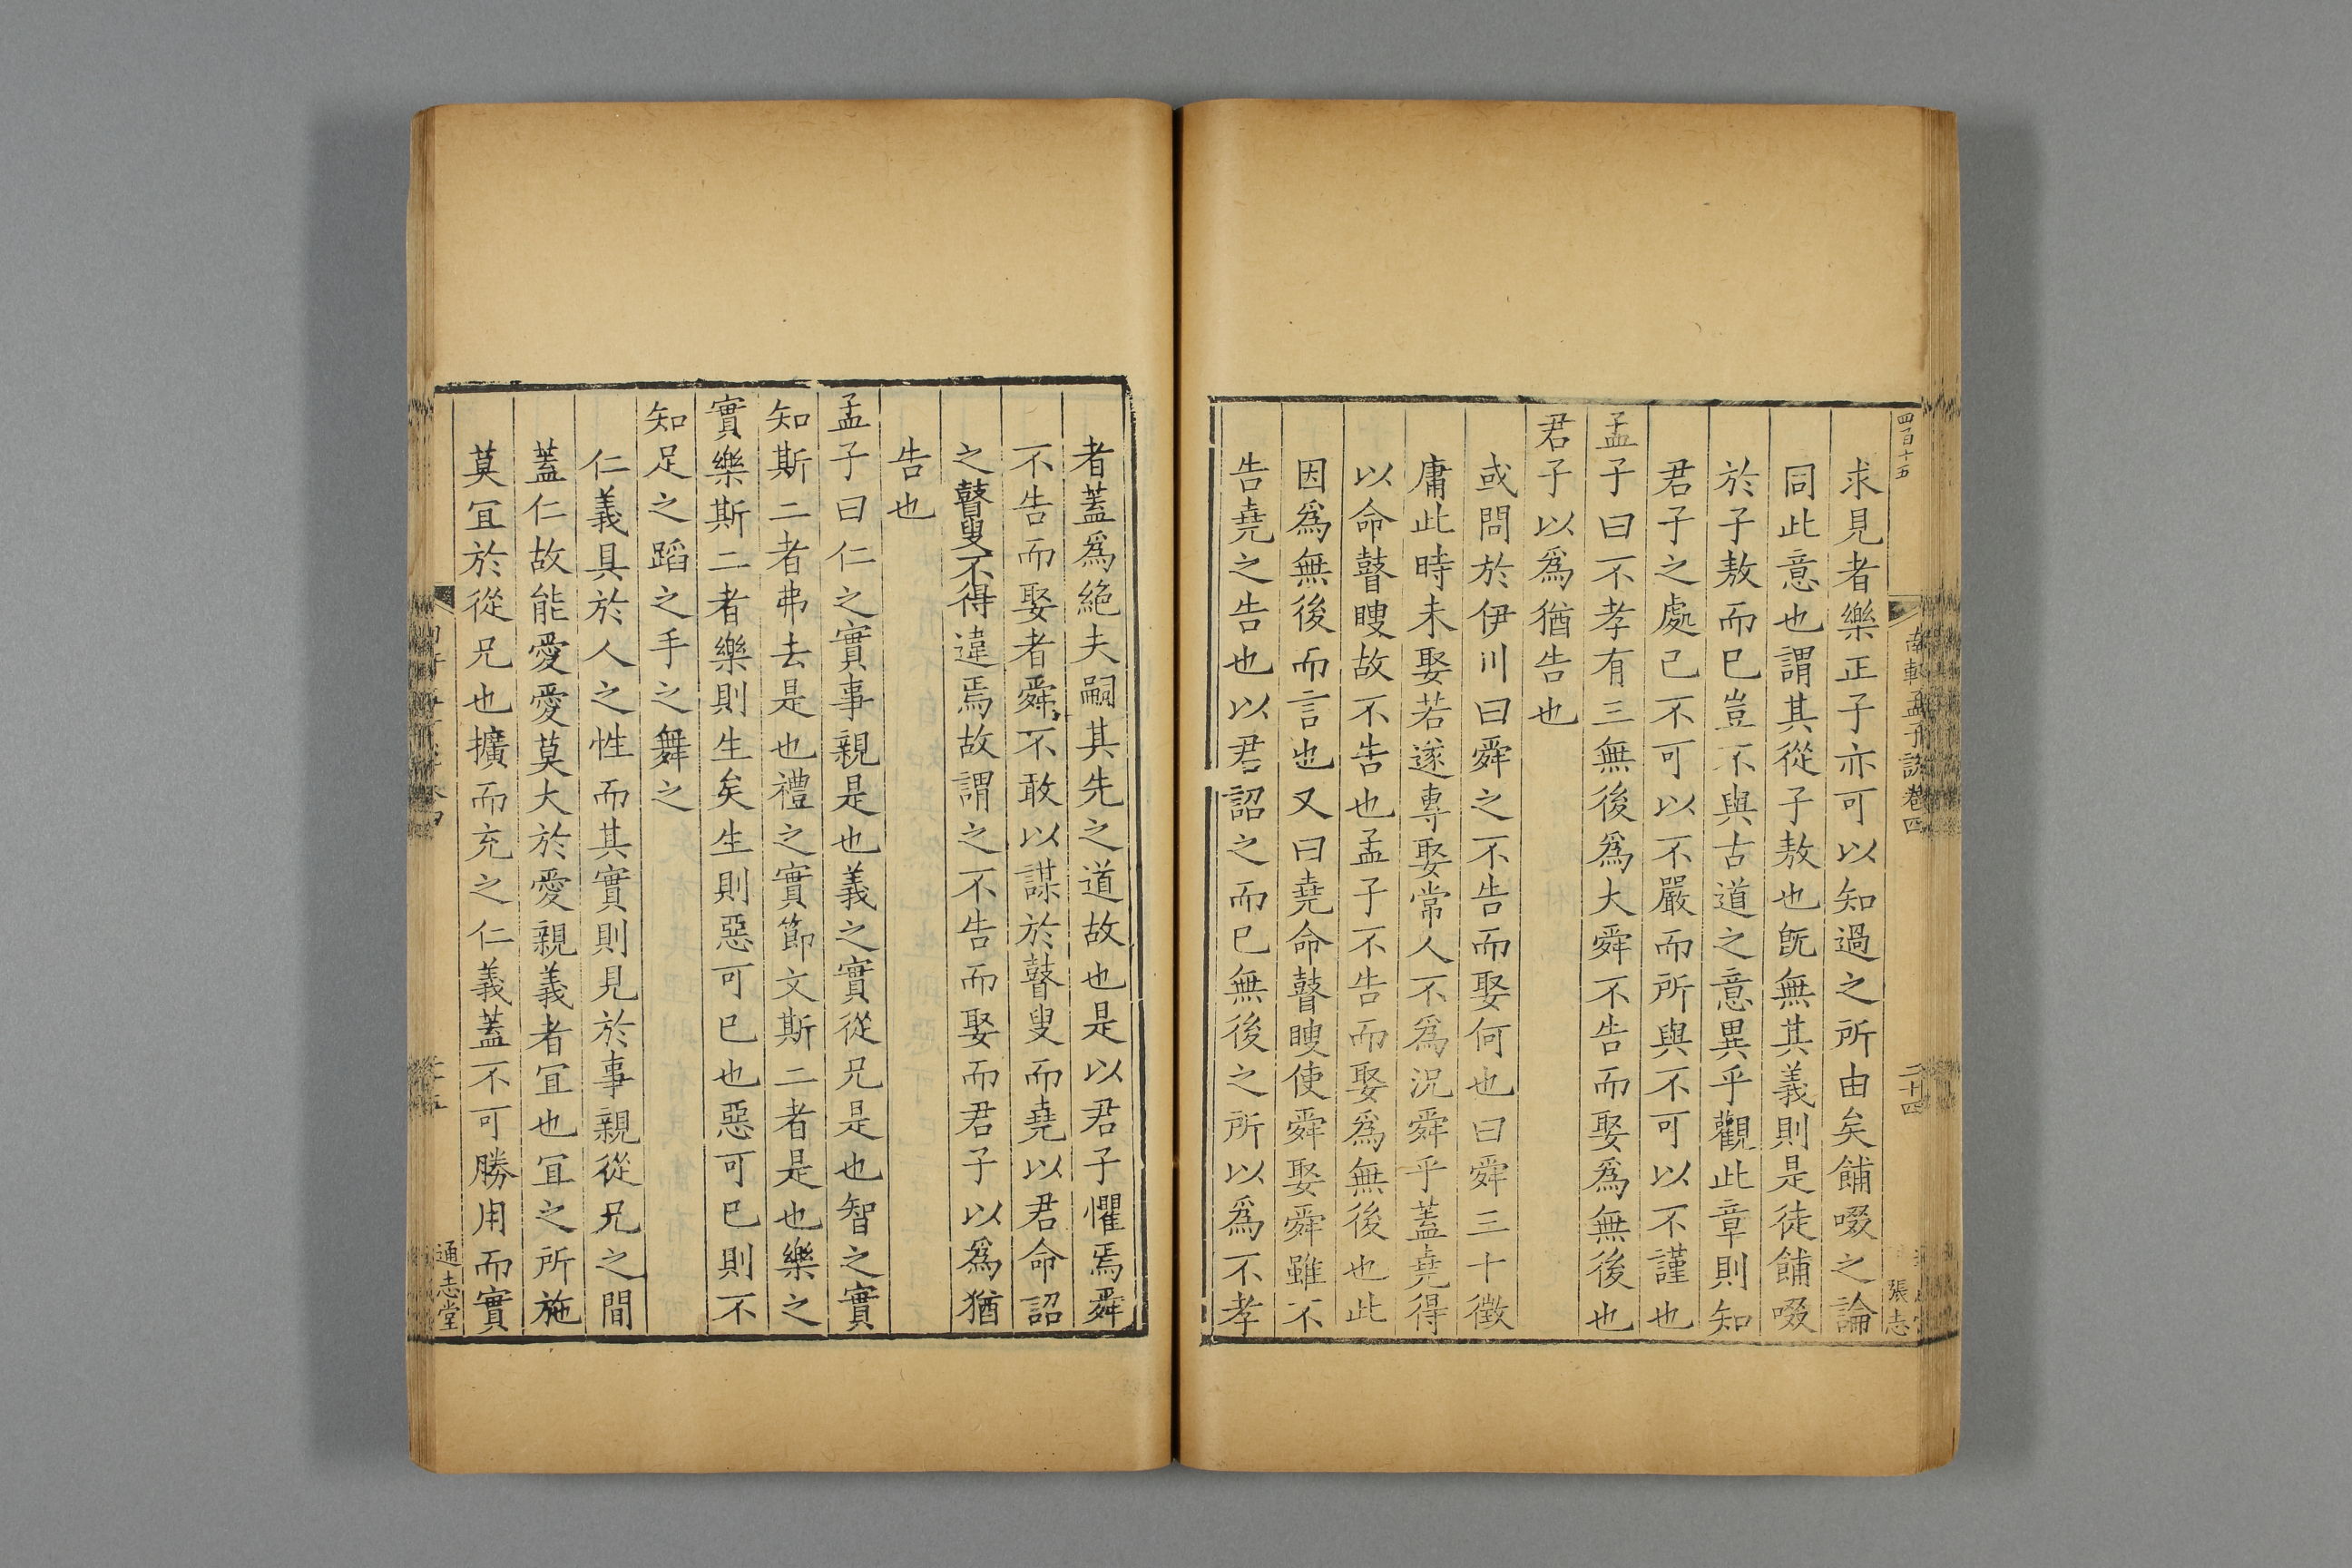 四百十五
南軒孟子說卷四
二十四
張志
求見者樂正子亦可以知過之所由矣餔啜之論
同此意也謂其從子敖也旣無其義則是徒餔啜
於子敖而已豈不與古道之意異乎觀此章則知
君子之處己不可以不嚴而所與不可以不謹也
孟子曰不孝有三無後爲大舜不告而娶爲無後也
君子以爲猶告也
或問於伊川曰舜之不告而娶何也曰舜三十徵
庸此時未娶若遂專娶常人不爲況舜乎蓋堯得
以命瞽瞍故不告也孟子不告而娶爲無後也此
因爲無後而言也又曰堯命瞽瞍使舜娶舜雖不
告堯之告也以君詔之而已無後之所以爲不孝
者蓋爲絕夫嗣其先之道故也是以君子懼焉舜
不告而娶者舜不敢以謀於瞽叟而堯以君命詔
之瞽叟不得違焉故謂之不告而娶而君子以爲猶
告也
孟子曰仁之實事親是也義之實從兄是也智之實
知斯二者弗去是也禮之實節文斯二者是也樂之
實樂斯二者樂則生矣生則惡可已也惡可已則不
知足之蹈之手之舞之
仁義具於人之性而其實則見於事親從兄之間
蓋仁故能愛愛莫大於愛親義者宜也宜之所施
莫宜於從兄也擴而充之仁義蓋不可勝用而實
通志堂